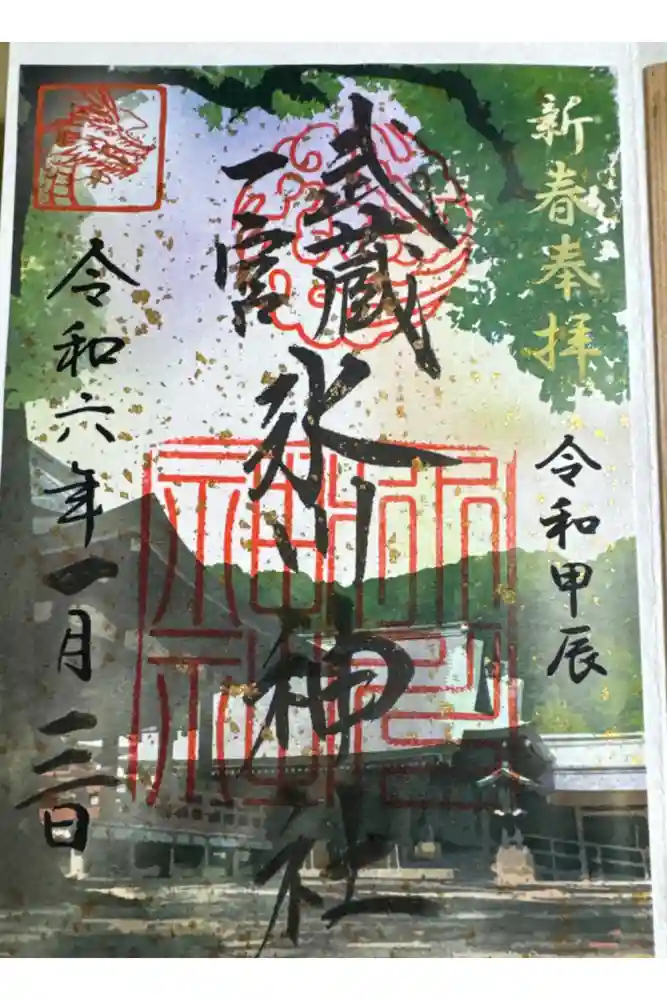 新春奉拝
令和甲辰
武蔵
一宮
氷川神社
令和六年一月三日